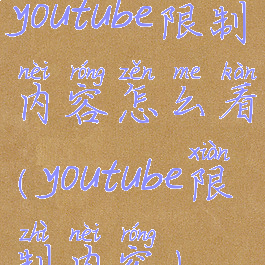 youtube限制
nèi róng zěn me kàn
内容怎么看
xiàn
(youtube限
zhì nèi róng
制内容)